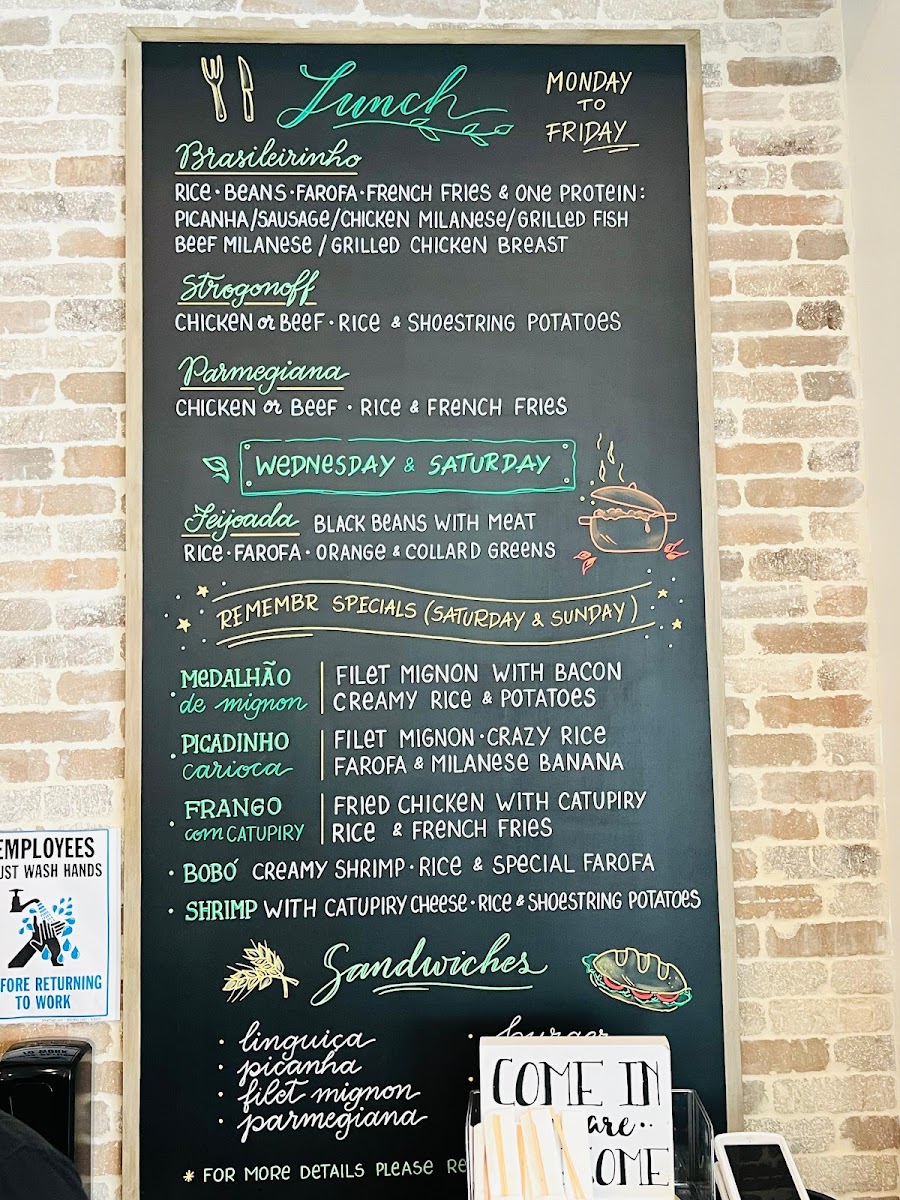 Lunch
MONDAY
TO
FRIDAY
Brasileirinho
RICE · BEANS · FAROFA · FRENCH FRIES & ONE PROTEIN:
PICANHA/SAUSAGE/CHICKEN MILANESE/GRILLED FISH
BEEF MILANESE / GRILLED CHICKEN BREAST
Strogonoff
CHICKEN or BEEF · RICE & SHOESTRING POTATOES
Parmegiana
CHICKEN or BEEF · RICE & FRENCH FRIES
WEDNESDAY & SATURDAY
Feijoada BLACK BEANS WITH MEAT
RICE · FAROFA · ORANGE & COLLARD GREENS
REMEMBR SPECIALS (SATURDAY & SUNDAY)
· MEDALHÃO de mignon | FILET MIGNON WITH BACON
CREAMY RICE & POTATOES
· PICADINHO carioca | FILET MIGNON · CRAZY RICE
FAROFA & MILANESE BANANA
· FRANGO com CATUPIRY | FRIED CHICKEN WITH CATUPIRY
RICE & FRENCH FRIES
· BOBÓ CREAMY SHRIMP · RICE & SPECIAL FAROFA
· SHRIMP WITH CATUPIRY CHEESE · RICE & SHOESTRING POTATOES
Sandwiches
· linguiça
· picanha
· filet mignon
· parmegiana
· burger
* FOR MORE DETAILS PLEASE
EMPLOYEES
UST WASH HANDS
FORE RETURNING
TO WORK
COME IN
are..
OME